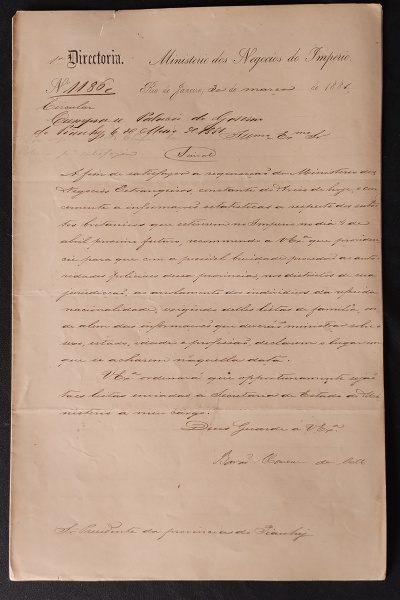 1ª Directoria. Ministerio dos Negocios do Imperio.
N. 1186 Rio de Janeiro, 30 de março de 1881.
Circular
Cumpra-se. Palacio do Governo
do Piauhy, 6 de Maio de 1881. Illmo Exmo Sr.
A fim de satisfazer a requisição do Ministerio dos
Negocios Estrangeiros, constante do Aviso de hoje, con-
cernente a informações estatisticas a respeito dos subdi-
tos britanicos que estiverem no Imperio no dia 4 de
abril proximo futuro, recommendo a V. Exª que providen-
cie para que com a possivel brevidade procedão as auto-
ridades policiaes dessa provincia, nos districtos de sua
jurisdicção, ao arrolamento dos individuos da referida
nacionalidade, exigindo delles listas de familia, on-
de alem das informações que deverão ministrar sobre o
sexo, estado, idade e profissão, declarem o lugar em
que se acharem n'aquella data.
V. Exª ordenará que opportunamente sejão
taes listas enviadas á Secretaria de Estado do Mi-
nisterio a meu cargo.
Deus Guarde a V. Exª.
Barão Homem de Mello
Sr. Presidente da provincia do Piauhy